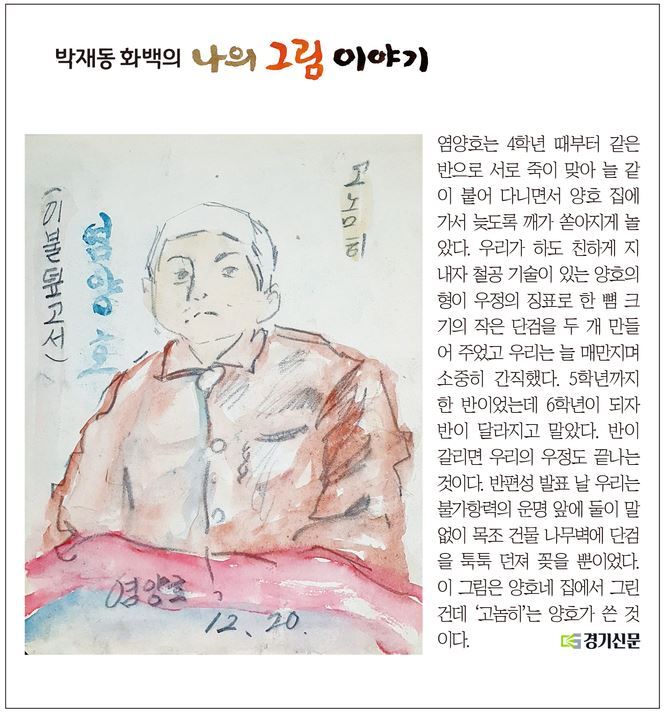 박재동 화백의 나의 그림 이야기
고놈히
염양호
(이불 덮고서)
염양호
12. 20.
염양호는 4학년 때부터 같은
반으로 서로 죽이 맞아 늘 같
이 붙어 다니면서 양호 집에
가서 늦도록 깨가 쏟아지게 놀
았다. 우리가 하도 친하게 지
내자 철공 기술이 있는 양호의
형이 우정의 징표로 한 뼘 크
기의 작은 단검을 두 개 만들
어 주었고 우리는 늘 매만지며
소중히 간직했다. 5학년까지
한 반이었는데 6학년이 되자
반이 달라지고 말았다. 반이
갈리면 우리의 우정도 끝나는
것이다. 반편성 발표 날 우리는
불가항력의 운명 앞에 둘이 말
없이 목조 건물 나무벽에 단검
을 툭툭 던져 꽂을 뿐이었다.
이 그림은 양호네 집에서 그린
건데 ‘고놈히’는 양호가 쓴 것
이다.
경기신문